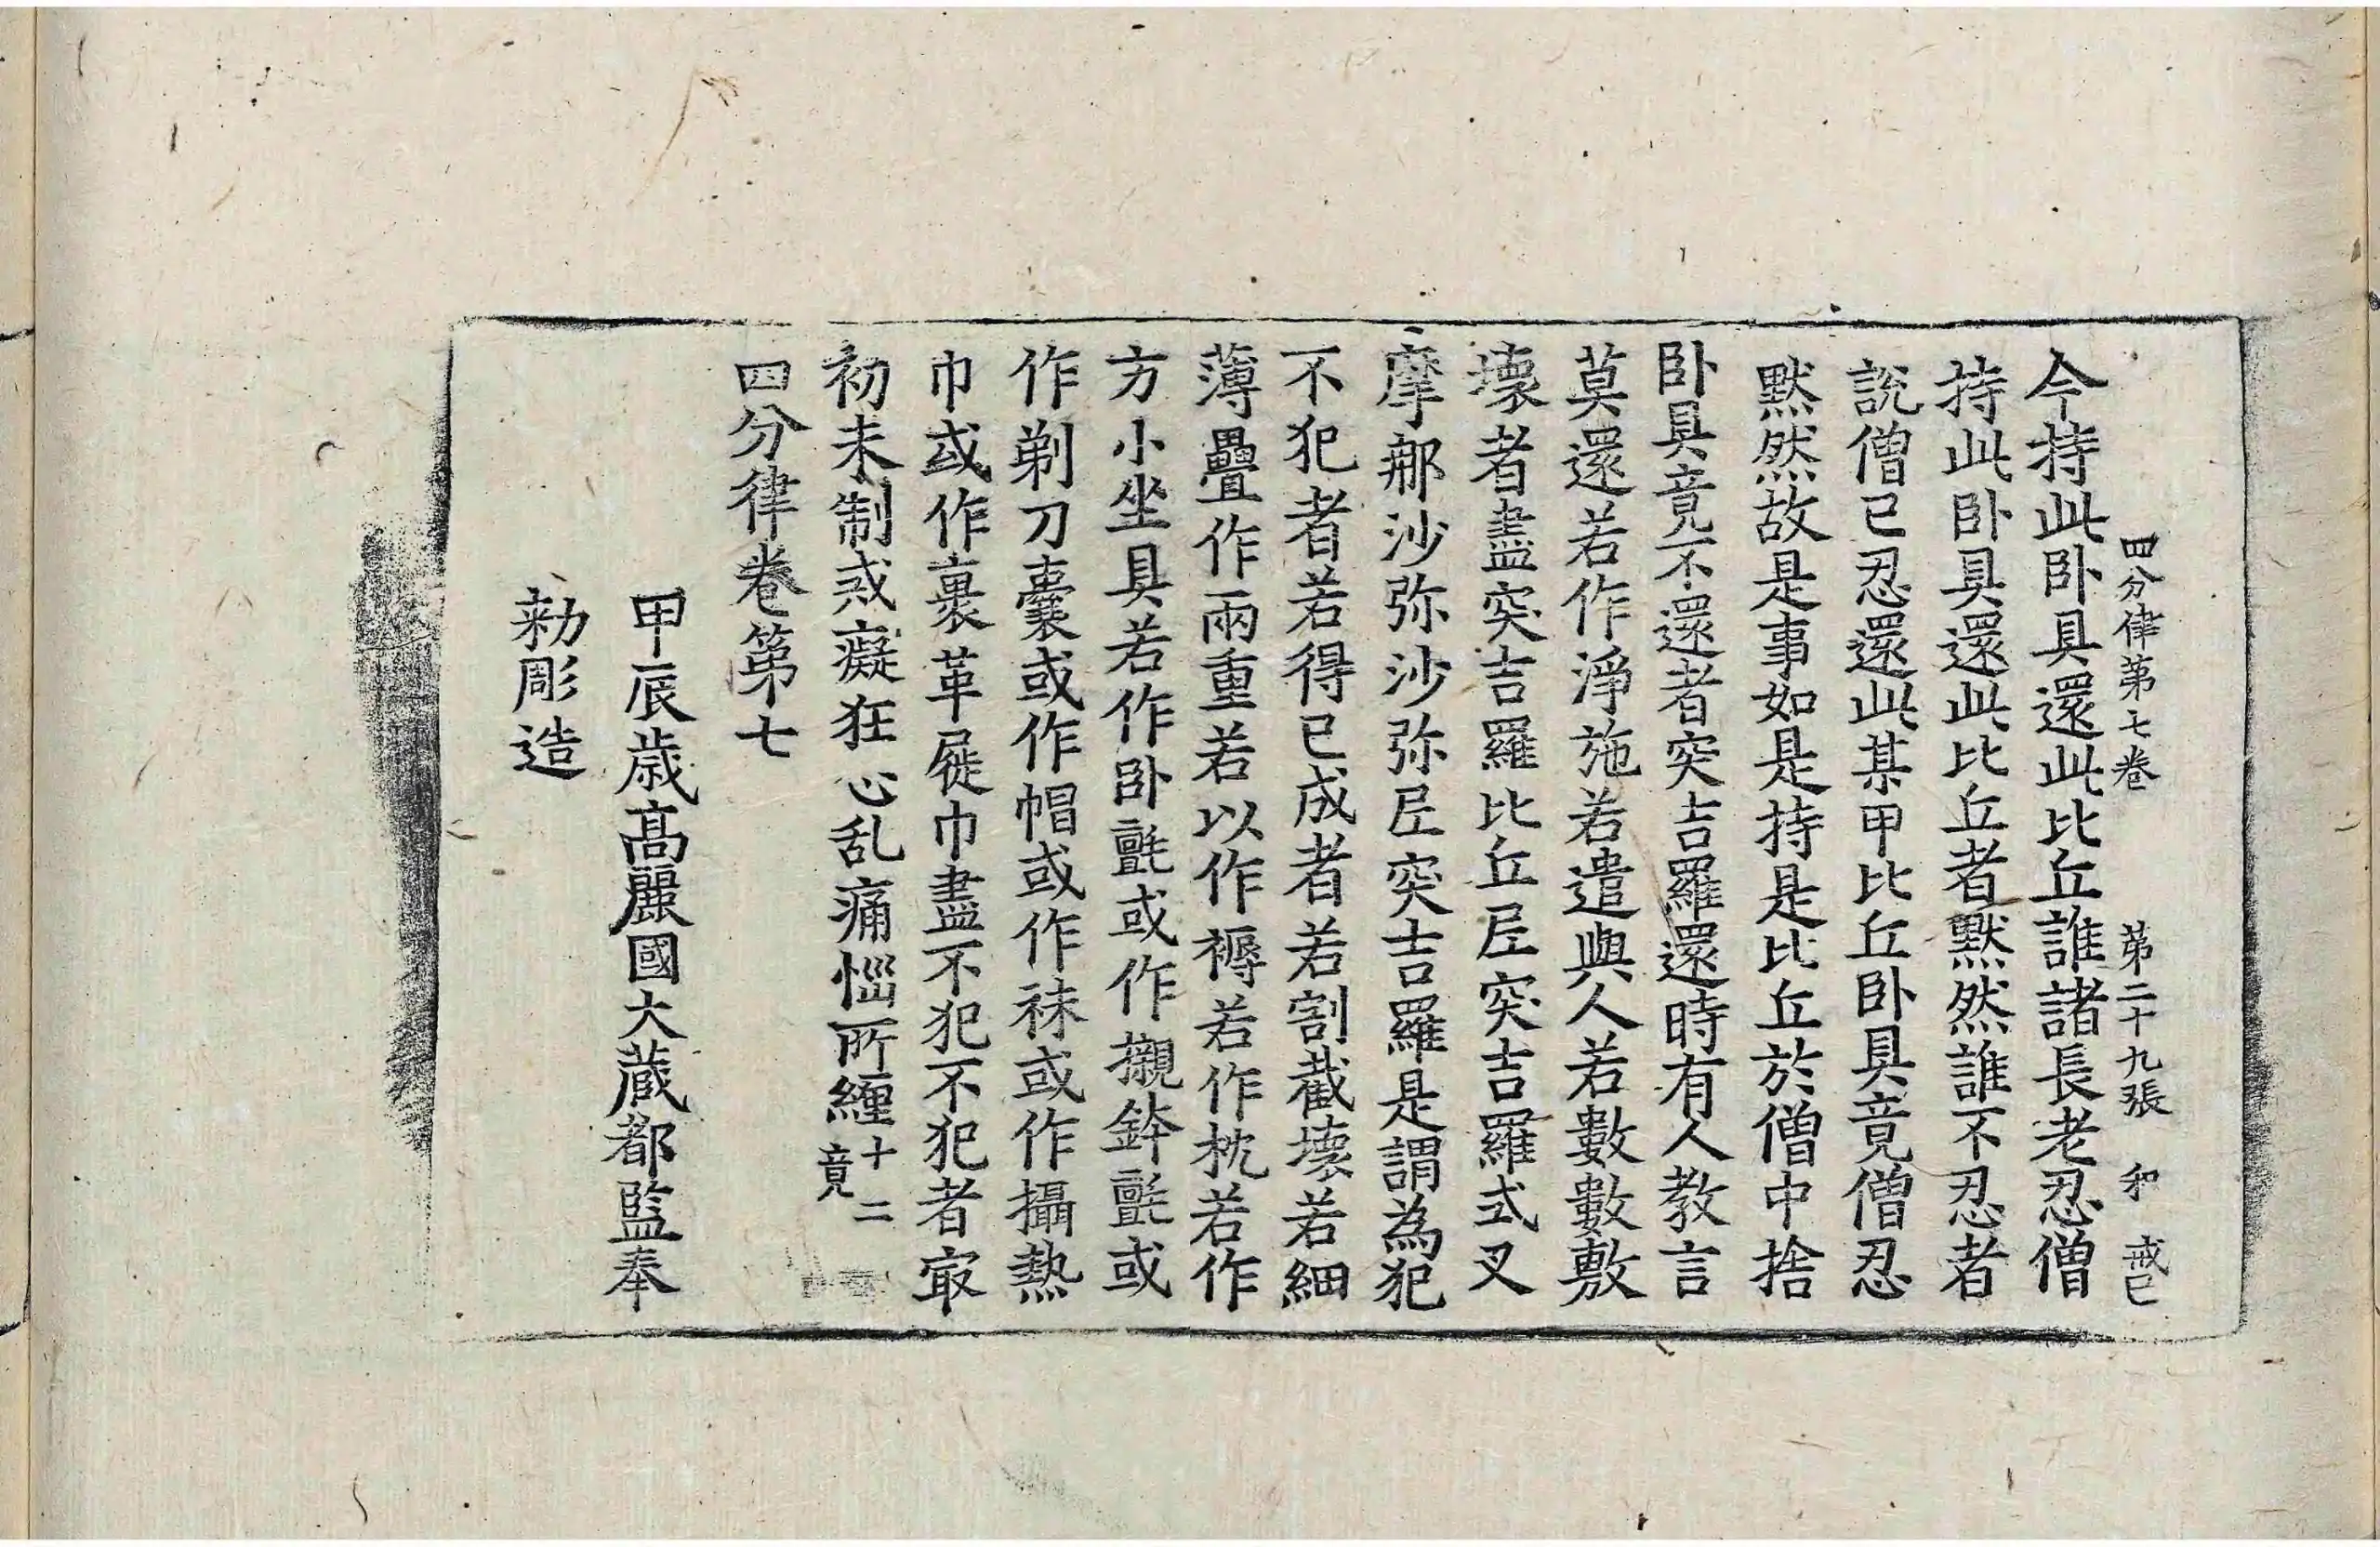 四分律第七卷 第二十九張 和 戒已
今持此卧具還此比丘誰諸長老忍僧
持此卧具還此比丘者黙然誰不忍者
說僧已忍還此某甲比丘卧具竟僧忍
黙然故是事如是持是比丘於僧中捨
卧具竟不還者突吉羅還時有人教言
莫還若作淨施若遣與人若數數敷
壞者盡突吉羅比丘尼突吉羅式叉
摩那沙弥沙弥尼突吉羅是謂為犯
不犯者若得已成者若割截壞若細
薄疊作兩重若以作褥若作枕若作
方小坐具若作卧氈或作襯鉢氈或
作剃刀囊或作帽或作袜或作攝熱
巾或作裹革屣巾盡不犯不犯者㝡
初未制戒癡狂心乱痛惱所纏十二竟
四分律卷第七
甲辰歳高麗國大藏都監奉
勑彫造